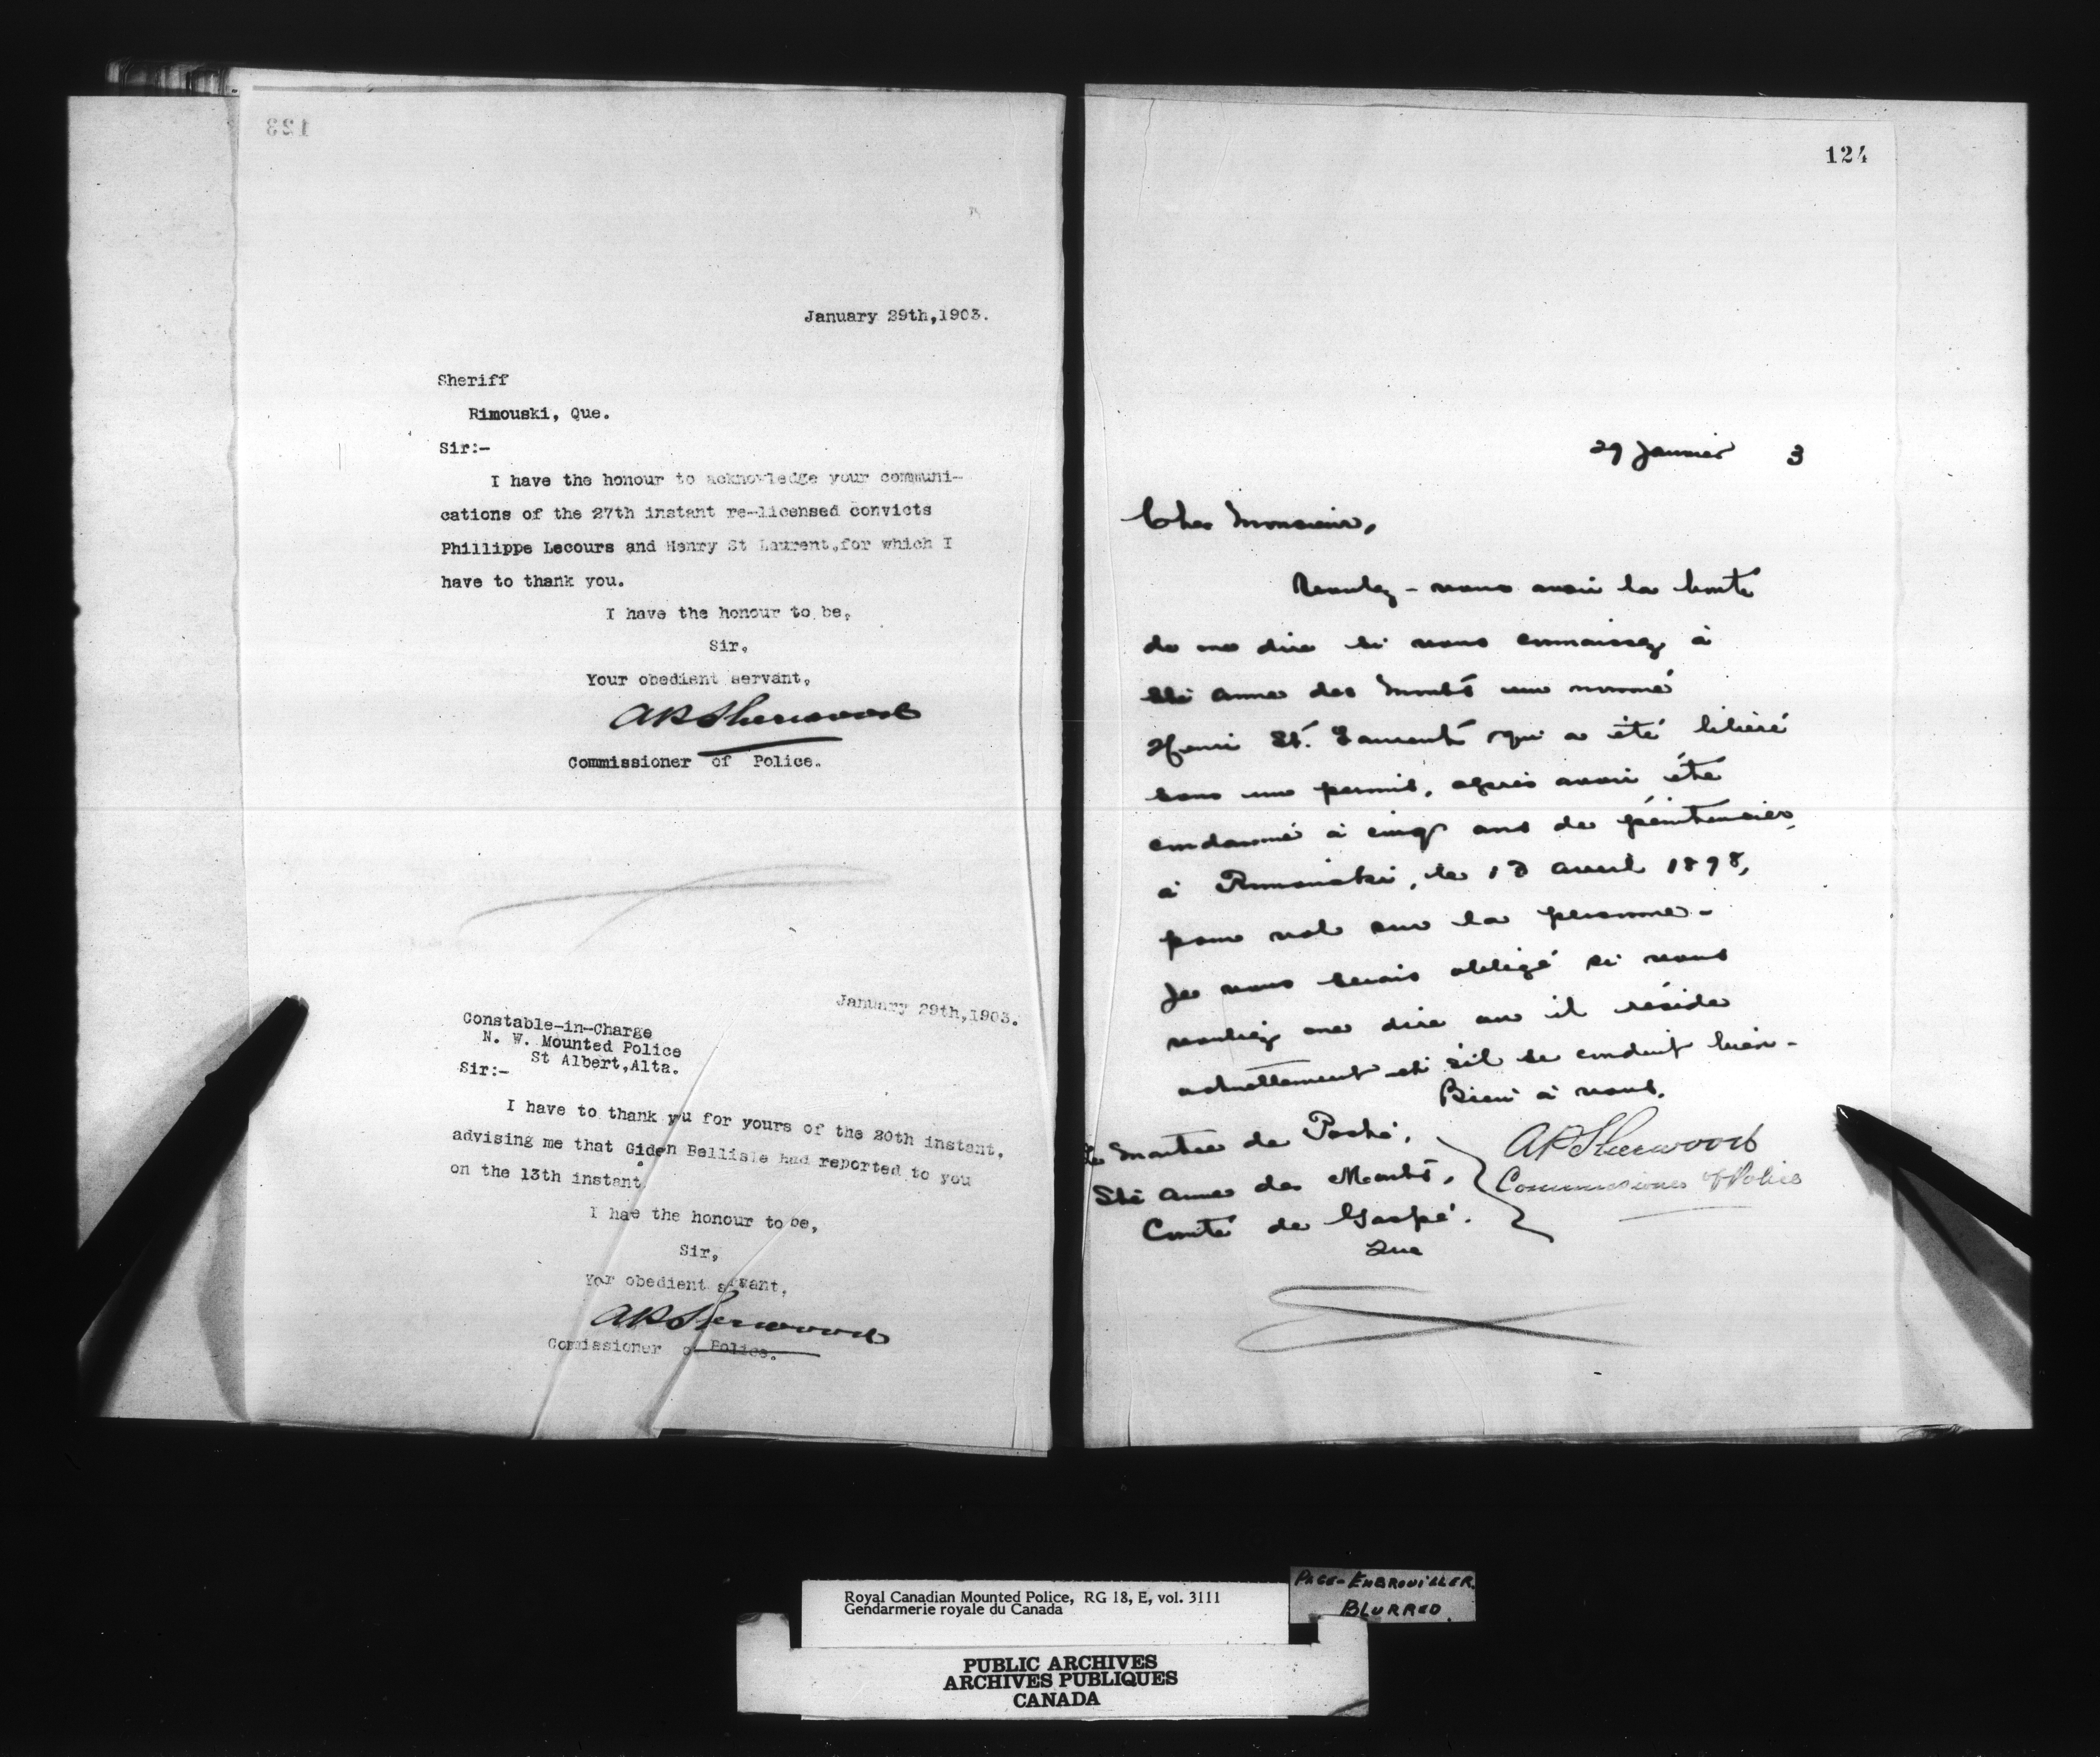 123
January 29th,1903.
Sheriff
Rimouski, Que.
Sir:-
I have the honour to acknowledge your communi-
cations of the 27th instant re-licensed convicts
Phillippe Lecours and Henry St Laurent,for which I
have to thank you.
I have the honour to be,
Sir,
Your obedient servant,
APSherwood
Commissioner of Police.
January 29th,1903.
Constable-in-Charge
N. W. Mounted Police
St Albert,Alta.
Sir:-
I have to thank yu for yours of the 20th instant,
advising me that Giden Bellisle had reported to you
on the 13th instant.
I hae the honour to be,
Sir,
Yor obedient srvant,
APSherwood
Comissioner o Police.
124
29 Janvier 3
Cher Monsieur,
Voulez-vous avoir la bonté
de me dire si vous connaissez à
Ste Anne des Monts un nommé
Henri St. Laurent qui a été libéré
sous un permis, après avoir été
condamné à cinq ans de pénitencier,
à Rimouski, le 13 avril 1898,
pour vol sur la personne.
Je vous serais obligé si vous
vouliez me dire où il réside
actuellement et s'il se conduit bien.
Bien à vous,
APSherwood
Commissioner of Police
Le Maitre de Poste,
Ste Anne des Monts,
Comté de Gaspé.
Que
Royal Canadian Mounted Police, RG 18, E, vol. 3111
Gendarmerie royale du Canada
PAGE-EMBROUILLER
BLURRED
PUBLIC ARCHIVES
ARCHIVES PUBLIQUES
CANADA